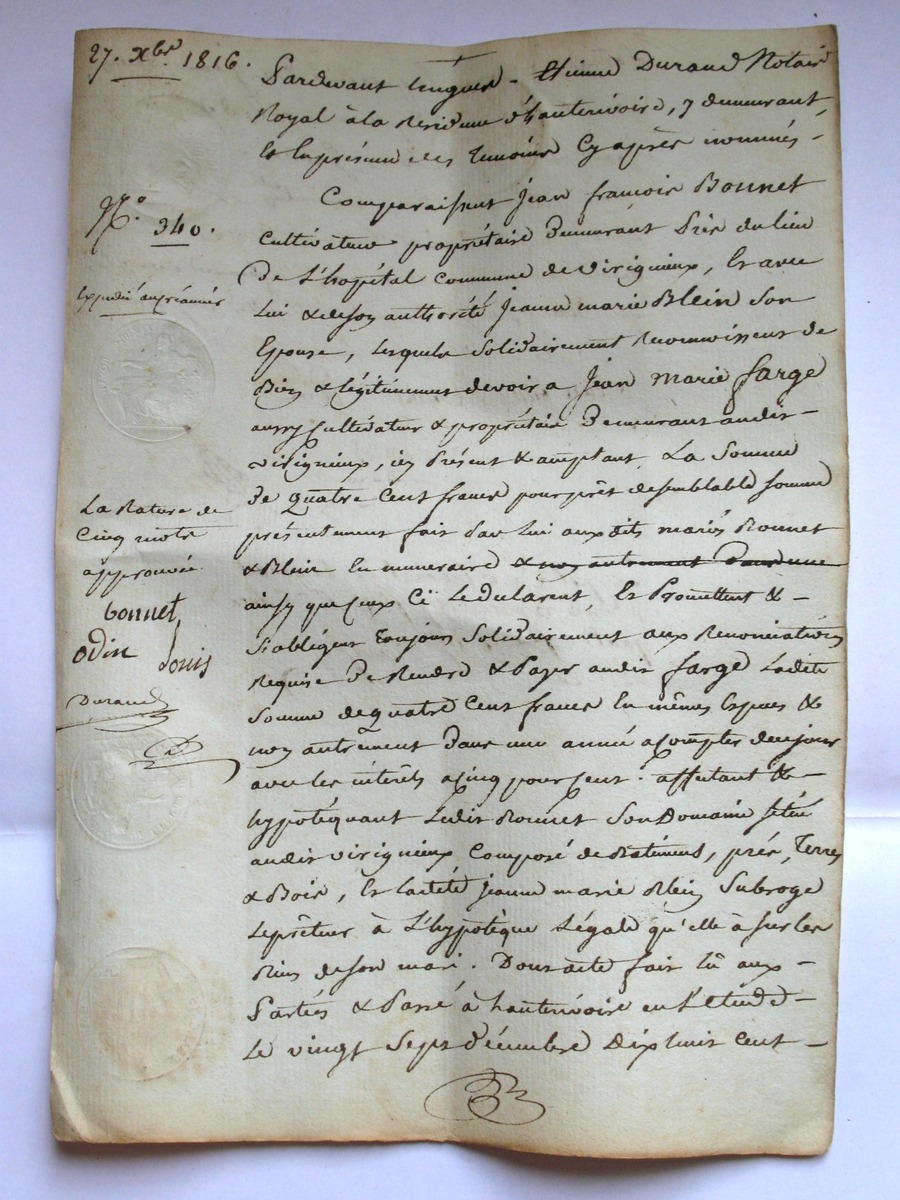 27. Xbre 1816.
Pardevant Etienne Durand Notaire
Royal à la Residence d'hauterivoire, y demeurant,
Et En présence des témoins Cy après nommés –
N.° 340.
Comparaissent Jean françois Bonnet
Cultivateur propriétaire Demeurant Près du lieu
De L'hopital Commune de Virigneux, Et avec
Expédié au créancier
Lui & de son authorité Jeanne marie Blein Son
Epouse, Lesquels Solidairement Reconnoissent de
Bien & légitimement devoir a Jean Marie farge
aussy Cultivateur & propriétaire Demeurant audit –
virigneux, icy Présent & acceptant, La Somme
De quatre Cent francs pour prêt de semblable somme
présentement fait par Lui aux dits mariés Bonnet
& Blein En numeraire & non autrement Dans une
ainsy que ceux Ci Le déclarent, Et Promettent & –
S'obligent toujours Solidairement aux Renonciations
Requise De Rendre & Payer audit farge Ladite
Somme de quatre Cent francs En mêmes Espèces &
non autrement Dans une année a Compter de ce jour
avec les intérêts a cinq pour cent. affectant & –
hypotéquant Ledit Bonnet Son Domaine Situé
audit virigneux Composé de Batiments, prés, Terres
& Bois, Et ladite Jeanne marie Blein Subroge
Le prêteur à L'hypotèque Légale qu'elle à sur les
Biens de son mari. Dont acte fait lû aux –
Parties & Passé à hauterivoire en L'étude –
Le vingt Sept Décembre Dix huit Cent –
La Rature de
Cinq mots
approuvée
bonnet
odin Louis
Durand